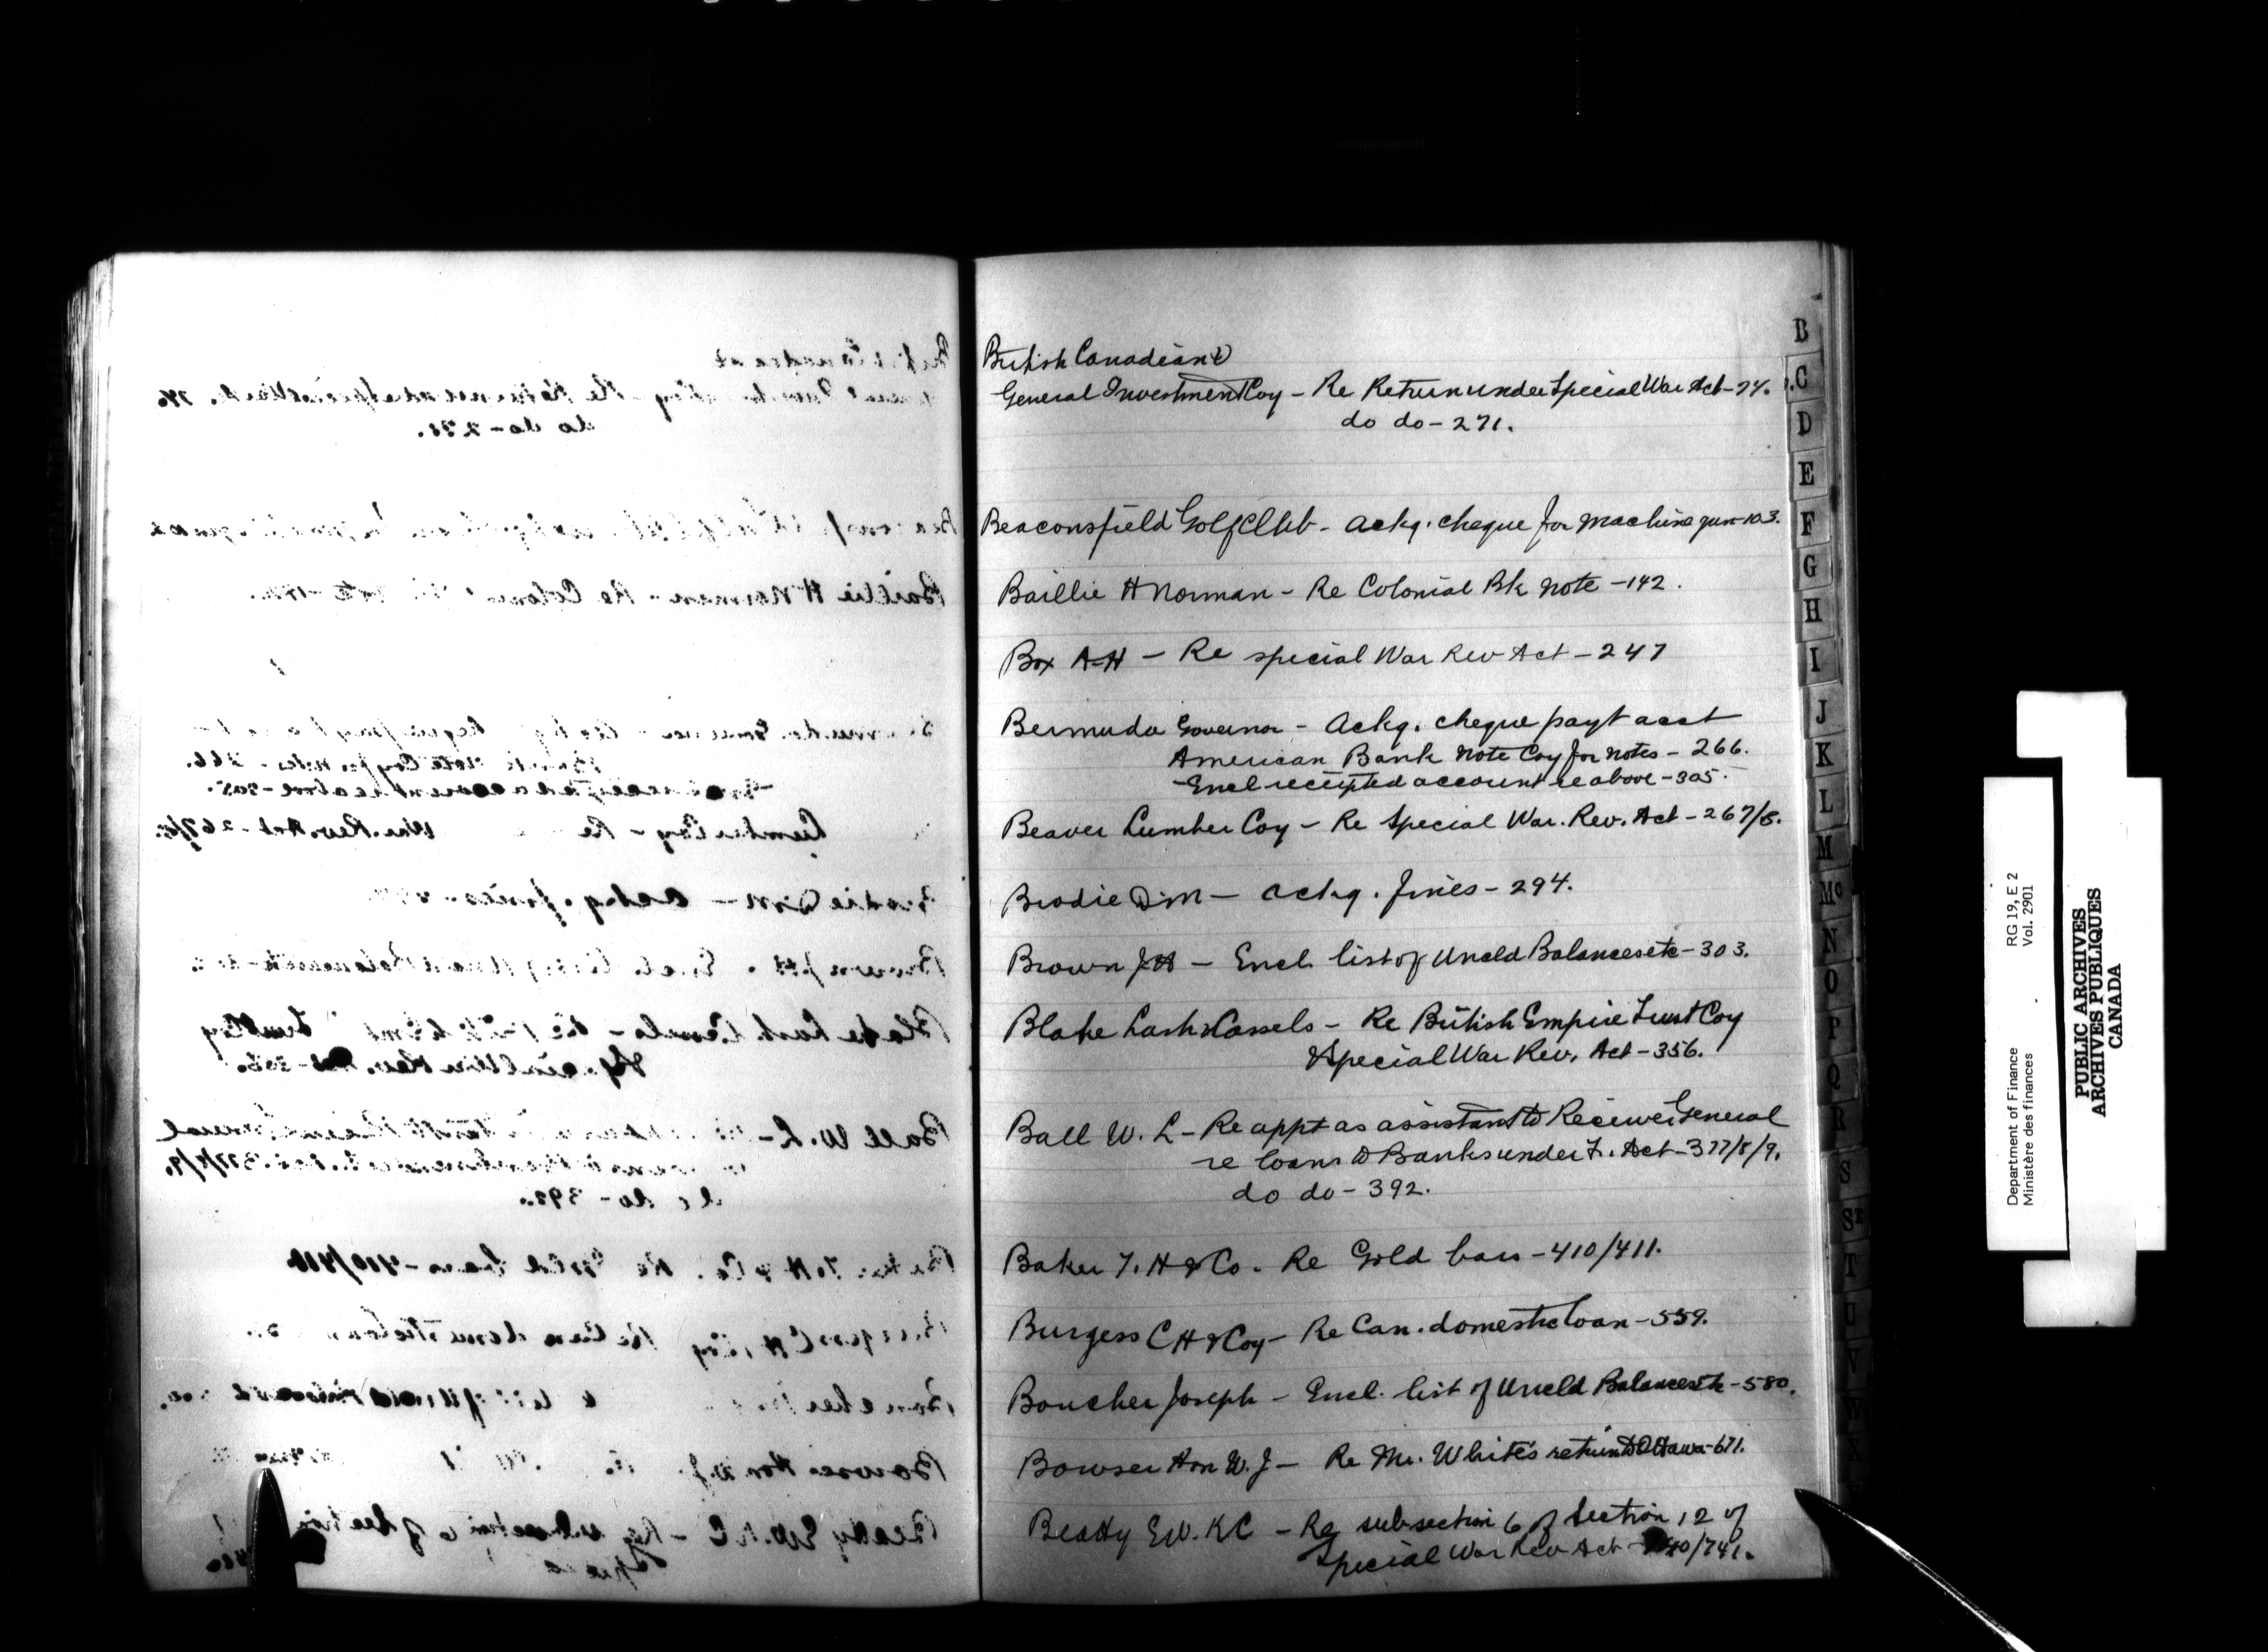 British Canadian &
General Investment Coy - Re Return under Special War Act - 74.
do do - 271.
Beaconsfield Golf Club - ackg. cheque for machine gun - 103.
Baillie H Norman - Re Colonial Bk Note - 142.
Box A H - Re special War Rev Act - 247
Bermuda Governor - Ackg. cheque payt acct
American Bank Note Coy for notes - 266.
- Encl receipted account re above - 305.
Beaver Lumber Coy - Re Special War. Rev. Act - 267/8.
Brodie D M - ackg. fines - 294.
Brown J H - Encl. list of Uncld Balances etc - 303.
Blake Lash & Cassels - Re British Empire Trust Coy
Special War Rev. Act - 356.
Ball W. L - Re appt as assistant to Receiver General
re loans to Banks under F. Act - 377/8/9.
do do - 392.
Baker T. H & Co. Re Gold bars - 410/411.
Burgess C H & Coy - Re Can. domestic loan - 559.
Boucher Joseph - Encl. list of Uncld Balances etc - 580.
Bowser Hon W. J - Re Mr. White's return to Ottawa - 671.
Beatty E W. KC - Re subsection 6 of Section 12 of
Special War Rev Act - 740/741.
B
C
D
E
F
G
H
I
J
K
L
M
Mc
N
O
P
Q
R
S
St
T
U
V
W
Department of Finance RG 19, E 2
Ministère des finances Vol. 2901
PUBLIC ARCHIVES
ARCHIVES PUBLIQUES
CANADA